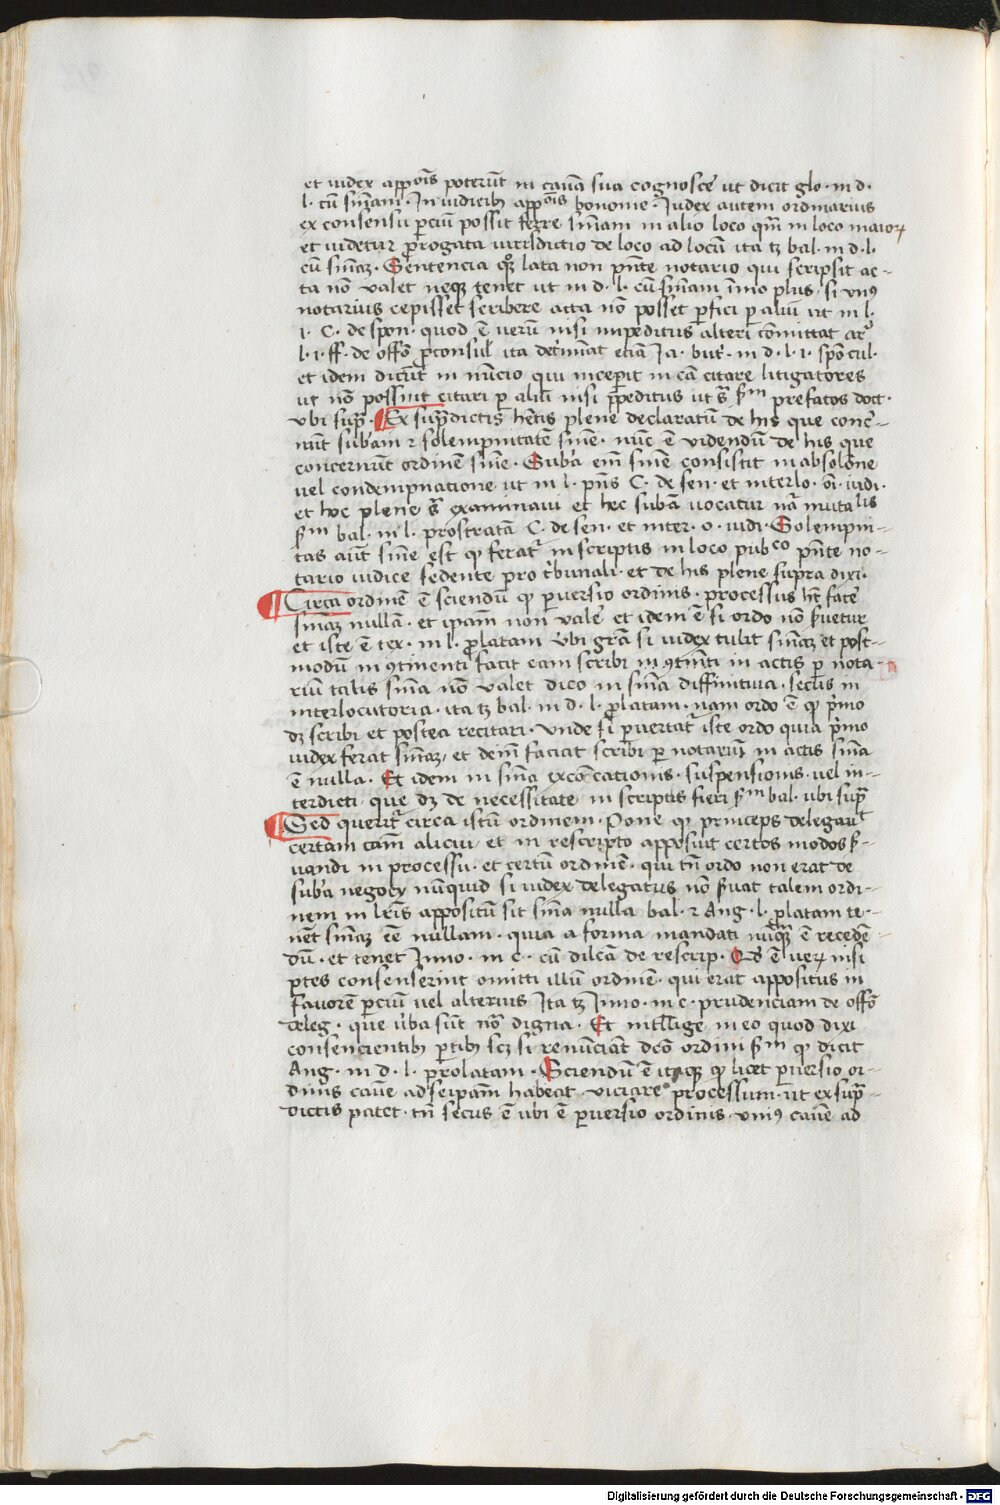 et iudex app̃oĩs poterũt in cauã sua cognosce᷒ ut dicit glo · in d ·
l · cũ sñiam · In iudicib᷒ app̃oĩs bononie · Iudex autem ordinarius
ex consensu ꝑciũ possit ferre sñiam in alio loco qm̃ in loco maioꝝ
et uidetur ꝓrogata iurisdictio de loco ad locũ ita tꝫ bal · in d · l ·
cũ sñiaꝫ · Sentencia qꝫ lata non pñte notario qui scripsit ac-
ta nõ valet neqꝫ tenet ut in d · l · cũ sñiam ĩmo plus / si vnꝰ
notarius cepisset scribere acta nõ posset ꝑfici ꝑ aliũ ut in l ·
i · C · de spon · quod ẽ verũ nisi impeditus alteri cõmittat ar᷒
l · i · ff · de offõ ꝓconsul ita det᷒minat eciã Ia · but᷒ · in d · l · i · spõ cul ·
et idem dicũt in nũcio qui incepit in cã citare litigatores
ut nõ possint citari ꝑ aliũ nisi p̃peditus ut s̃ ẜm prefatos doct ·
vbi sup̃ · ¶ Ex sup̃dictis hẽtis plene declaratũ de his que conc᷒-
nũt sub̃am ⁊ solempnitatẽ sñie · nũc ẽ videndũ de his que
concernũt ordinẽ sñie · Sub̃a em̃ sñie consistit in absolõne
vel condempnatione ut in l · pñs C · de sen · et interlo · oĩ · iudi ·
et hoc plene s̃ examinaui et hec subã uocatur nã mutalis
ẜm bal · in l · prostratã C · de sen · et inter · o · iudi · Solempni-
tas aũt sñie est ꝙ ferat᷒ in scriptis in loco pubco pñte no-
tario iudice sedente pro t᷒bunali · et de his plene supra dixi ·
¶ Circa ordinẽ ẽ sciendũ ꝙ ꝑuersio ordinis · processus hẽt face᷒
sñiaꝫ nullã · et ipam̃ non vale᷒ et idem ẽ si ordo nõ ẜuetur
et iste ẽ tex · in l · ꝓlatam vbi grã si iudex tulit sñiaꝫ et post-
modũ in ꝯtinenti facit eam scribi in ꝯtinẽti in actis ꝑ nota-
riũ talis sñia nõ valet dico in sñia diffinitiua · secus in
interlocutoria · ita tꝫ bal · in d · l · ꝓlatam · nam ordo ẽ ꝙ p᷒mo
dꝫ scribi et postea recitari · vnde si ꝑuertat᷒ iste ordo quia p᷒mo
iudex ferat sñiaꝫ / et dem̃ faciat scribi ꝑ notariũ in actis sñia
ẽ nulla · Et idem in sñia excõicationis · suspensionis · uel in-
terdicti · que dꝫ de necessitate in scriptis fieri ẜm bal · ubi sup̃
¶ Sed querit᷒ circa istũ ordinem · Pone ꝙ princeps delegaut
certam cam̃ alicui · et in rescripto apposuit certos modos ẜ-
uandi in processu · et certũ ordinẽ · qui tñ ordo non erat de
sub̃a negocij nũquid si iudex delegatus nõ ẜuat talem ordi-
nem in lr̃is appositũ sit sñia nulla bal · ⁊ Ang · l · ꝓlatam te-
nẽt sñiaꝫ eẽ nullam · quia a forma mandati nũqꝫ ẽ recedẽ-
dũ · et tenet Inno · in c · cũ dilcã de rescrip · Qd̃ ẽ veꝝ nisi
ꝑtes consenserint omitti illũ ordinẽ · qui erat appositus in
fauorẽ ꝑciũ uel alterius Ita tꝫ Inno · in c · prudenciam de offõ
deleg · que ũba sũt no᷒ digna · Et intllige in eo quod dixi
consencientib᷒ ꝑtib᷒ scꝫ si renũciãt dc̃o ordini ẜm ꝙ dicit
Ang · in d · l · prolatam · Sciendũ ẽ itaqꝫ ꝙ licet ꝑuersio or-
dinis cause ad seipam̃ habeat viciare processum · ut ex sup̃-
dictis patet · tñ secus ẽ ubi ẽ ꝑuersio ordinis · vniꝰ cause ad
Digitalisierung gefördert durch die Deutsche Forschungsgemeinschaft - DFG